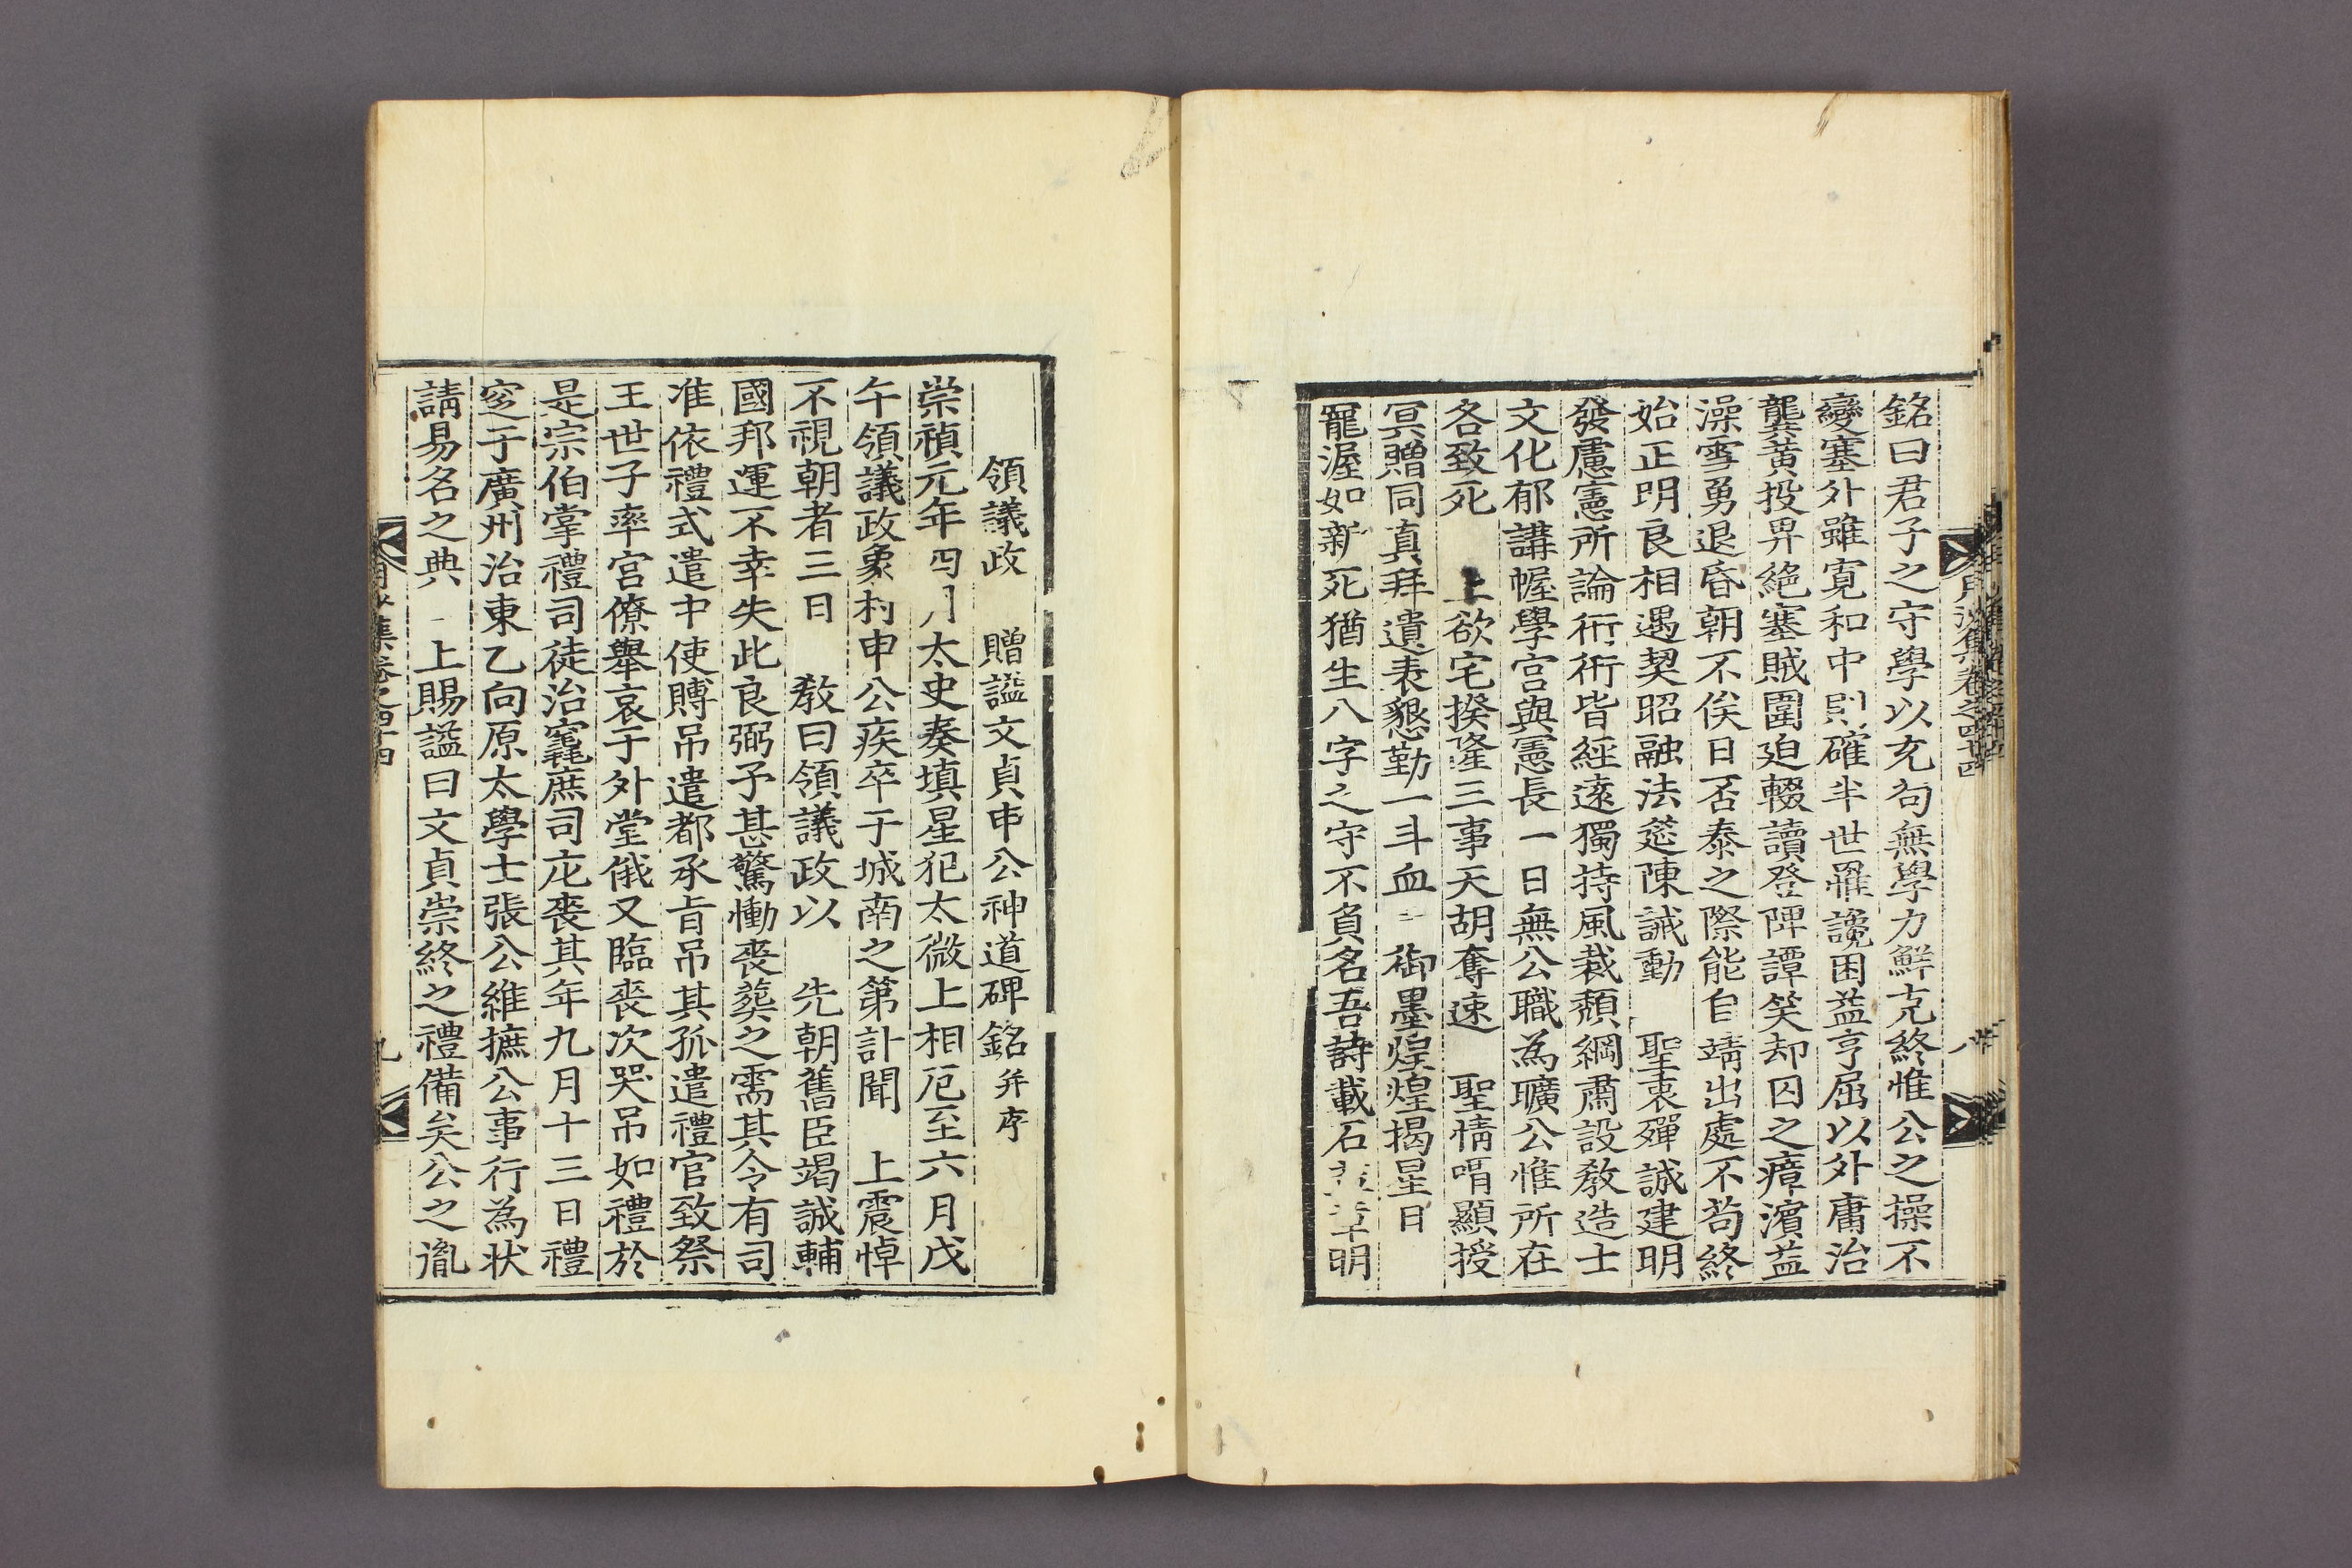 銘曰君子之守學以充苟無學力鮮克終惟公之操不
變塞外雖寬和中則確半世罹讒困益亨屈以外庸治
龔黃投畀絶塞賊圍迫輟讀登陴譚笑却囚之瘴濱益
澡雪勇退昏朝不俟日否泰之際能自靖出處不苟終
始正明良相遇契昭融法筵陳誡動　聖衷殫誠建明
發慮憲所論術術皆經遠獨持風裁頹綱肅設敎造士
文化郁講幄學宮與憲長一日無公職為曠公惟所在
各致死　上欲宅揆隆三事天胡奪速　聖情喟顯授
冥贈同真拜遺表懇勤一斗血　御墨煌煌揭星日
寵渥如新死猶生八字之守不負名吾詩載石明
月沙集卷之四十四
八
領議政　贈諡文貞申公神道碑銘并序
崇禎元年四月太史奏填星犯太微上相厄至六月戊
午領議政象村申公疾卒于城南之第訃聞　上震悼
不視朝者三日　敎曰領議政以　先朝舊臣竭誠輔
國邦運不幸失此良弼予甚驚慟喪葬之需其令有司
准依禮式遣中使賻吊遣都承旨吊其孤遣禮官致祭
王世子率宮僚舉哀于外堂俄又臨喪次哭吊如禮於
是宗伯掌禮司徒治竁庶司庀喪其年九月十三日禮
窆于廣州治東乙向原太學士張公維摭公事行為狀
請易名之典　上賜諡曰文貞崇終之禮備矣公之胤
月沙集卷之四十四
九